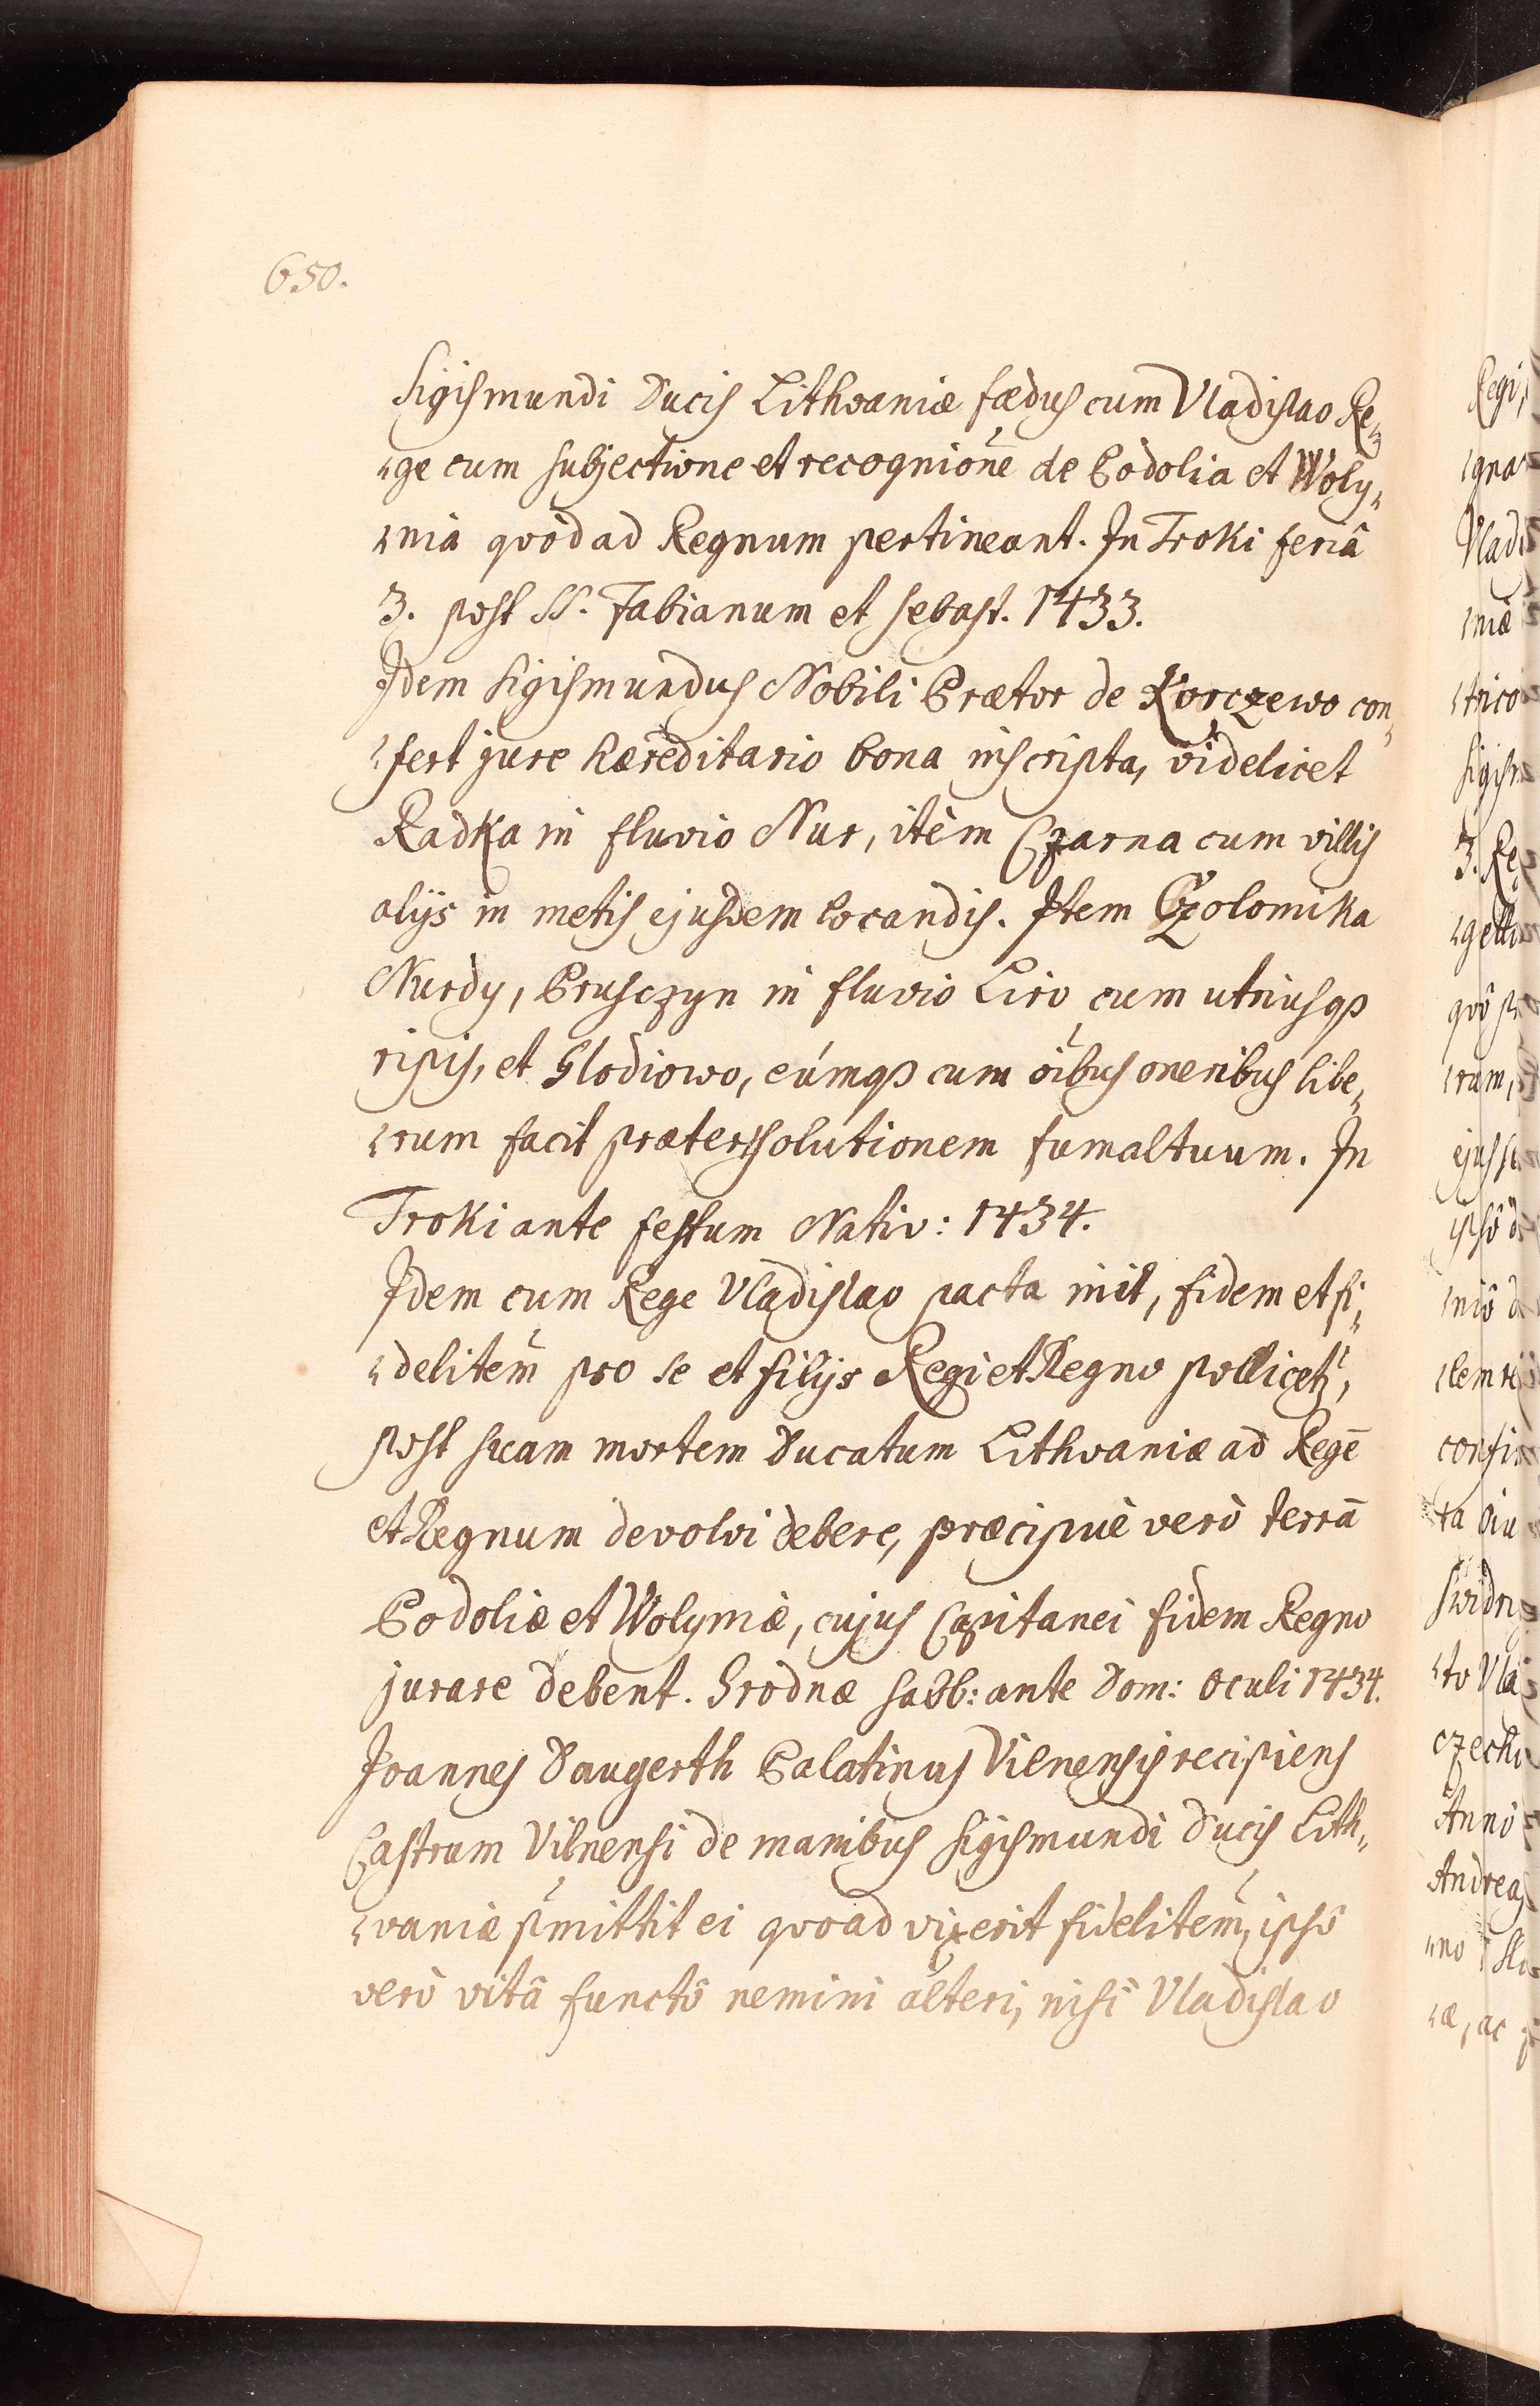 650.
Sigismundi Ducis Lithvaniæ fædus cum Vladislao Re„
„ge cum subjectione et recognióne de Podolia et Woly„
„nia qvòd ad Regnum pertineant. In Troki feriâ
3. post SS. Fabianum et Sebast. 1433.
Idem Sigismundus Nobili Prætor de Korczewo con„
„fert jure hæreditario bona inscripta, videlicet
Radka in fluvio Nur, item Czarna cum villis
alijs in metis ejusdem locandis. Item Czolomika
Nurdy, Prusczyn in fluvio Liro cum utriusqꝫ
ripis, et Glodiowo, eúmqꝫ cum oĩbus oneribus libe„
„rum facit præter solutionem fumaltuum. In
Troki ante festum Nativ: 1434.
Idem cum Rege Vladislao pacta init, fidem et fi„
„delitem̃ pro se et filijs Regi et Regno pollicetr,
post suam mortem Ducatum Lithvaniæ ad Regē
et Regnum devolvi debere, præcipuè verò terrā
Podoliæ et Wolyniæ, cujus Capitanei fidem Regno
jurare debent. Grodnæ Sabb: ante Dom: Oculi 1434.
Joannes Daugerth Palatinus Vilnensis recipiens
Castrum Vilnensi de manibus Sigismundi Ducis Lith„
„vaniæ p̃mittit ei qvoad vixerit fidelitem̃, ipsô
verò vitâ functô nemini alteri, nisi Vladislao